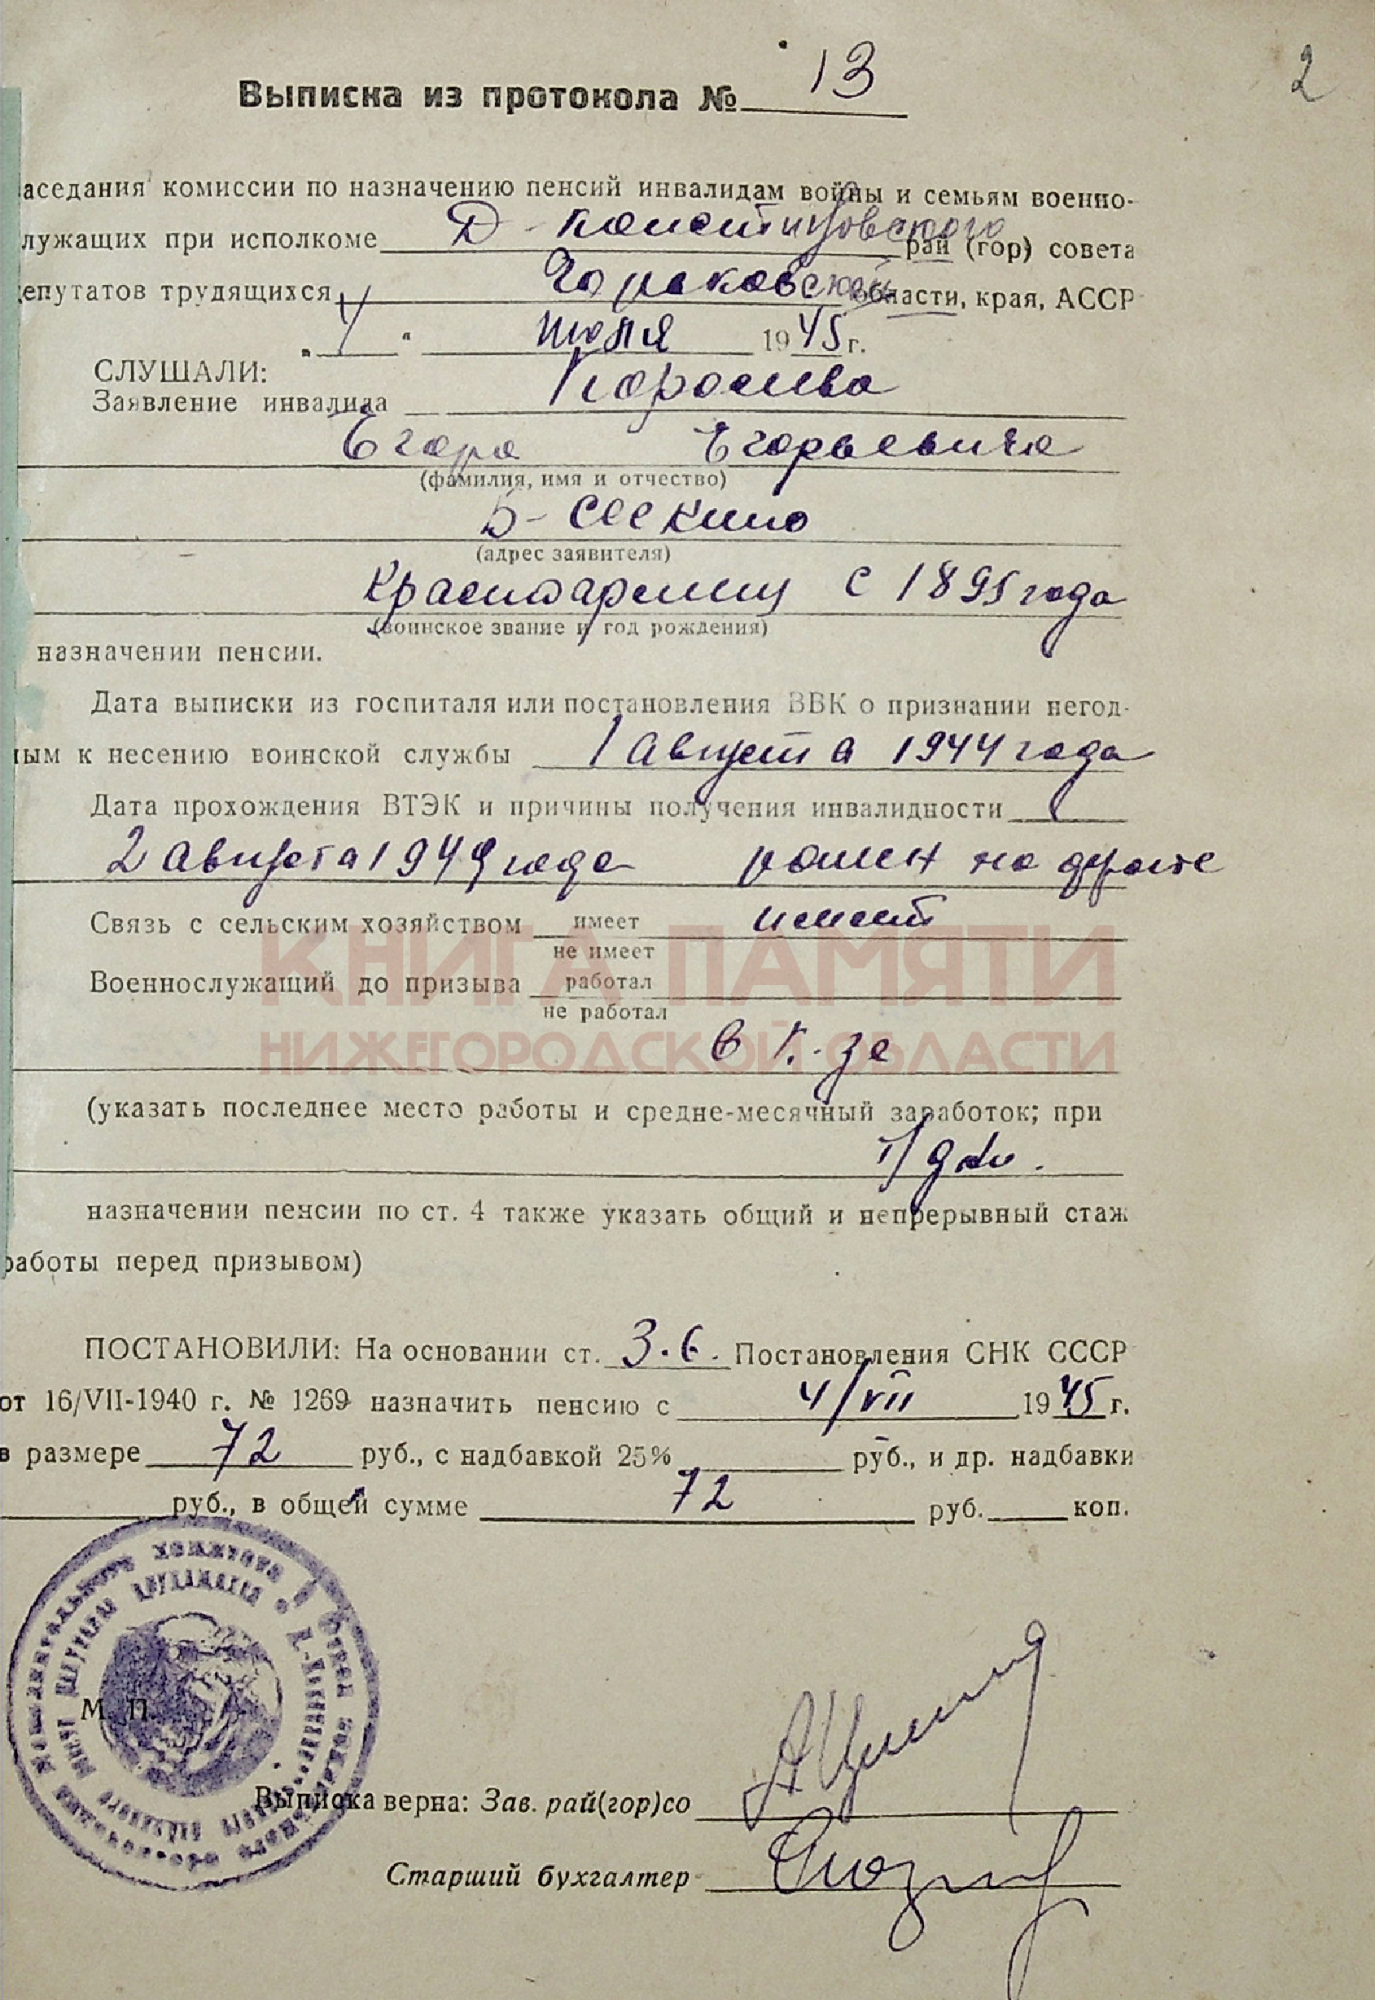 2
Выписка из протокола № 13
аседания комиссии по назначению пенсий инвалидам войны и семьям военно-
лужащих при исполкоме Д-Константиновского рай (гор) совета
епутатов трудящихся Горьковской области, края, АССР
„ 4 " июля 1945 г.
СЛУШАЛИ:
Заявление инвалида
Егора Егорьевича
(фамилия, имя и отчество)
Б-Сескино
(адрес заявителя)
Красноармеец с 1895 года
(воинское звание и год рождения)
назначении пенсии.
Дата выписки из госпиталя или постановления ВВК о признании негод-
ным к несению воинской службы 1 августа 1944 года
Дата прохождения ВТЭК и причины получения инвалидности
2 августа 1944 года ранен на фронте
Связь с сельским хозяйством имеет имеет
не имеет
Военнослужащий до призыва работал
не работал
в к-зе
(указать последнее место работы и средне-месячный заработок; при
назначении пенсии по ст. 4 также указать общий и непрерывный стаж
работы перед призывом)
ПОСТАНОВИЛИ: На основании ст. 3.6. Постановления СНК СССР
от 16/VII-1940 г. № 1269 назначить пенсию с 4/VII 1945 г.
в размере 72 руб., с надбавкой 25% руб., и др. надбавки
руб., в общей сумме 72 руб. коп.
М. П.
Выписка верна: Зав. рай(гор)со
Старший бухгалтер
КНИГА ПАМЯТИ
НИЖЕГОРОДСКОЙ ОБЛАСТИ